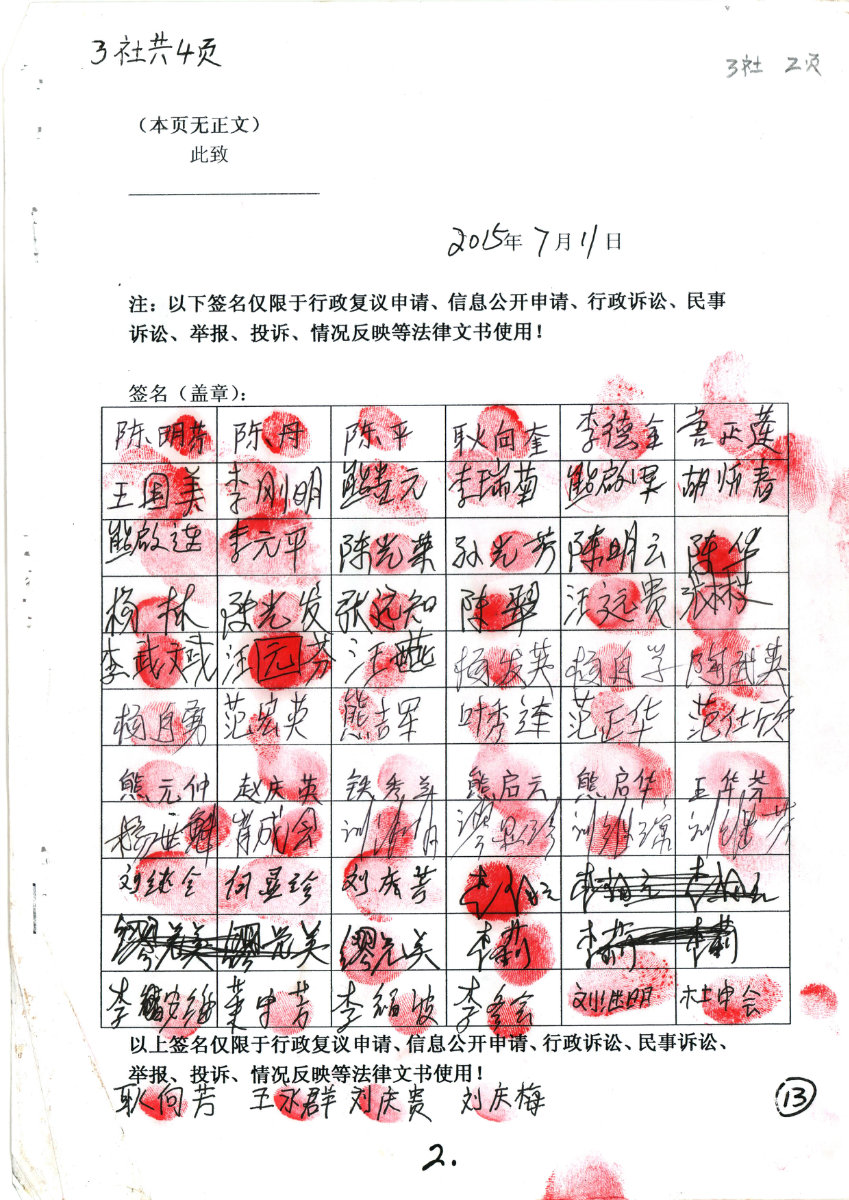 3社共4页
3社 2页
（本页无正文）
此致
2015年7月11日
注：以下签名仅限于行政复议申请、信息公开申请、行政诉讼、民事
诉讼、举报、投诉、情况反映等法律文书使用！
签名（盖章）：
陈明芬 陈丹 陈平 耿向奎 李德全 唐正莲
王国美 李刚明 熊元 李瑞菊 熊啟军 胡春
熊啟连 李元平 陈光荣 孙光芳 陈明云 陈华
杨林 陈光发 张远知 陈翠 汪文贵 张林
李武 汪元芬 汪燕 杨发英 杨自学 陶武英
杨自勇 范宏英 熊吉军 叶秀连 范正华 范仕欣
熊元仲 赵庆英 铁秀兰 熊启云 熊启华 王华芬
杨世魁 肖成会
刘继全 何显珍 刘庆芳
缪元美 缪元美 缪元美 李莉 李莉 李莉
李维 叶中芳 李绍波 李会 刘世明 杜中会
以上签名仅限于行政复议申请、信息公开申请、行政诉讼、民事诉讼、
举报、投诉、情况反映等法律文书使用！
耿向芳 王永群 刘庆贵 刘庆梅
13
2.